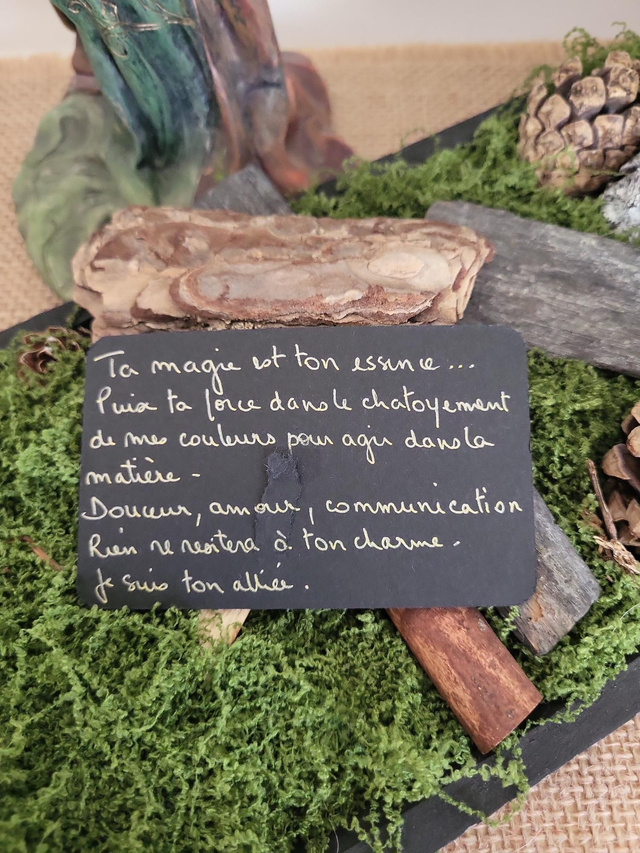 Ta magie est ton essence...
Puise ta force dans le chatoyement
de mes couleurs pour agir dans la
matière -
Douceur, amour, communication
Rien ne resistera à ton charme.
Je suis ton alliée.